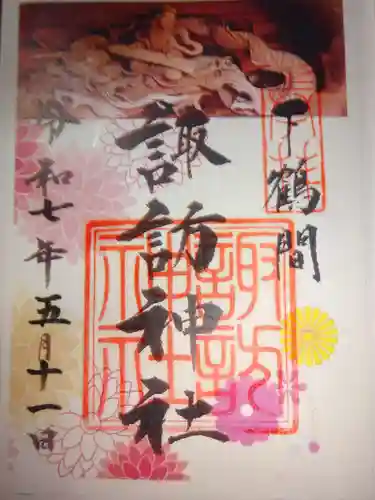 下鶴間
諏訪神社
諏訪神社
令和七年五月十一日